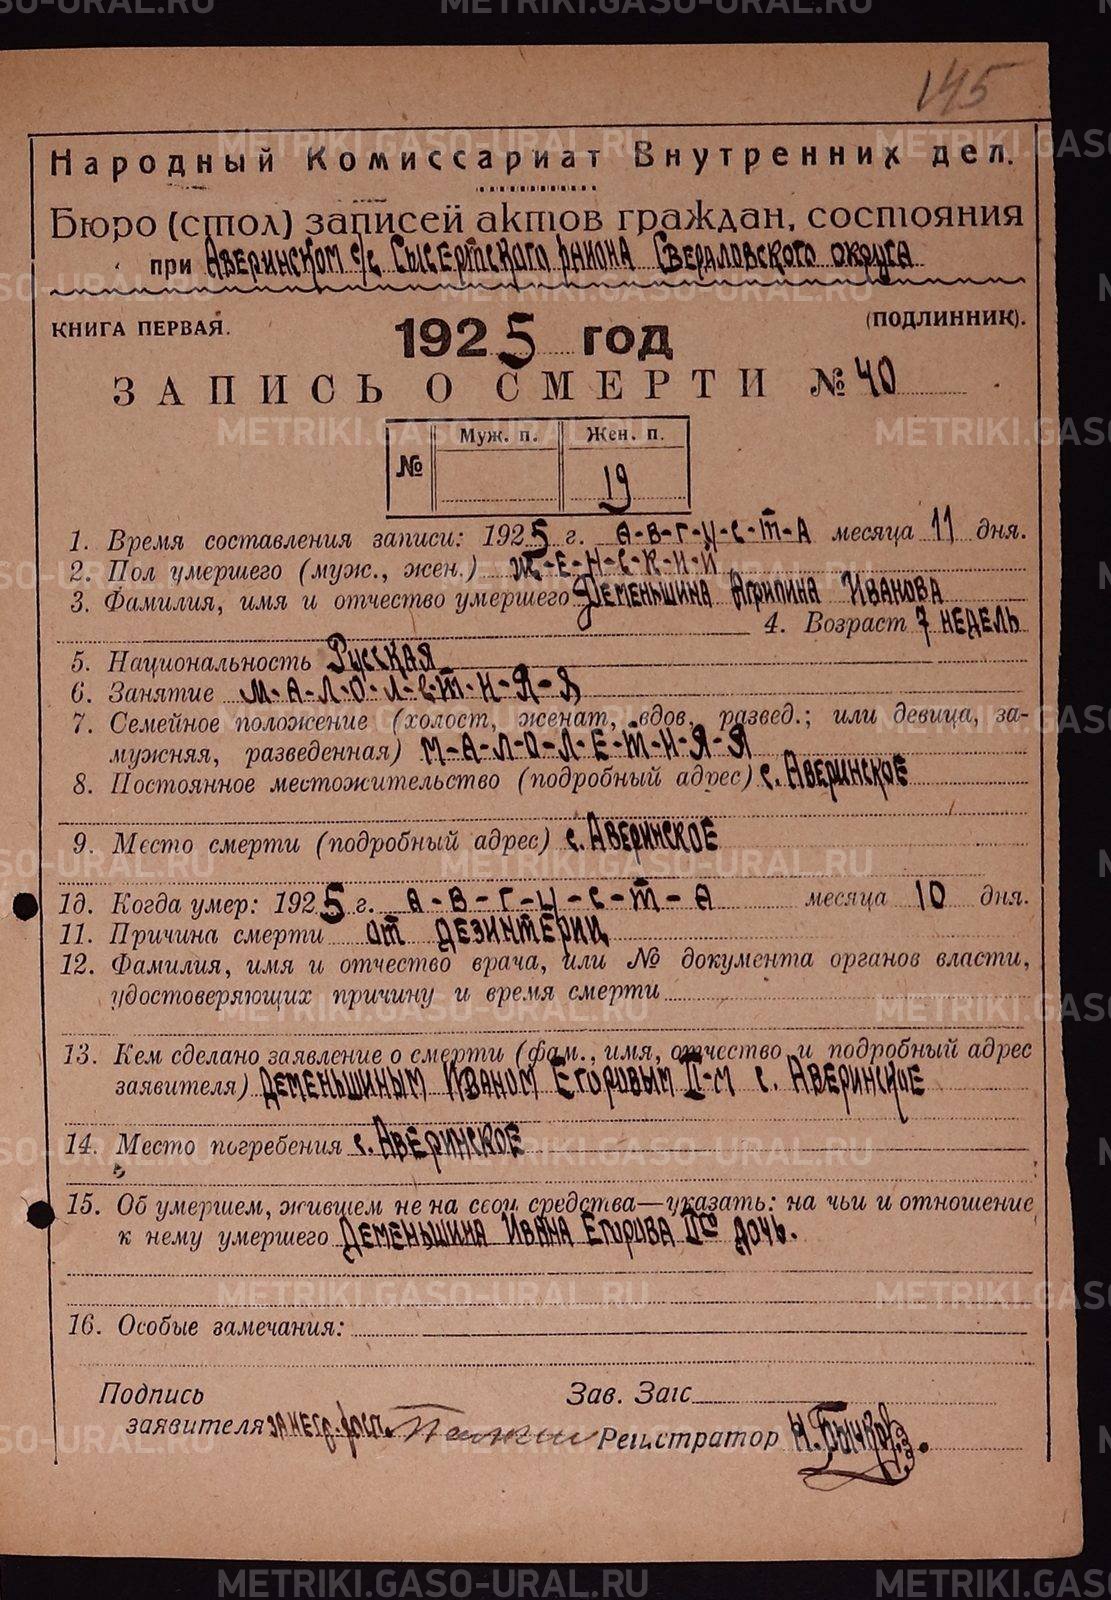 145
Народный Комиссариат Внутренних дел.
Бюро (стол) записей актов граждан, состояния
при Аверинском с/с Сысертского района Свердловского округа
КНИГА ПЕРВАЯ.
(ПОДЛИННИК).
1925 год
ЗАПИСЬ О СМЕРТИ № 40
№ Муж. п. Жен. п.
19
1. Время составления записи: 1925 г. А-В-Г-У-С-Т-А месяца 11 дня.
2. Пол умершего (муж., жен.) Ж-Е-Н-С-К-И-Й
3. Фамилия, имя и отчество умершего Деменьшина Агрипина Иванова
4. Возраст 7 недель
5. Национальность Русская
6. Занятие М-А-Л-О-Л-Е-Т-Н-Я-Я
7. Семейное положение (холост, женат, вдов, развед.; или девица, за-
мужняя, разведенная) М-А-Л-О-Л-Е-Т-Н-Я-Я
8. Постоянное местожительство (подробный адрес) с. Аверинское
9. Место смерти (подробный адрес) с. Аверинское
10. Когда умер: 1925 г. А-В-Г-У-С-Т-А месяца 10 дня.
11. Причина смерти от дезинтерии
12. Фамилия, имя и отчество врача, или № документа органов власти,
удостоверяющих причину и время смерти
13. Кем сделано заявление о смерти (фам., имя, отчество и подробный адрес
заявителя) Деменьшиным Иваном Егоровым II-м с. Аверинское
14. Место погребения с. Аверинское
15. Об умершем, жившем не на свои средства—указать: на чьи и отношение
к нему умершего Деменьшина Ивана Егорова IIго дочь.
16. Особые замечания:
Подпись
заявителя за негр.
Зав. Загс
Регистратор Н. Бычков
METRIKI.GASO-URAL.RU